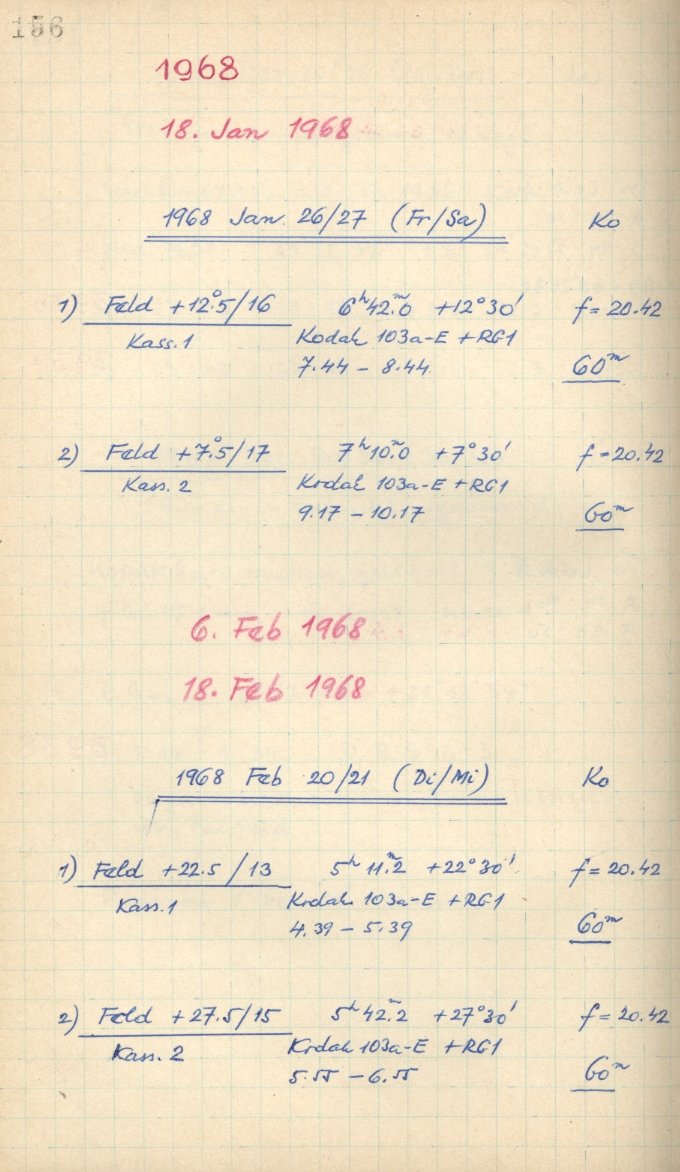 156
1968
18. Jan 1968
1968 Jan. 26/27 (Fr/Sa) Ko
1) Feld +12°.5/16 6ʰ42.ᵐ0 +12°30' f = 20.42
Kass. 1 Kodak 103a-E + RG1
7.44 – 8.44 60ᵐ
2) Feld +7°.5/17 7ʰ10.ᵐ0 +7°30' f = 20.42
Kass. 2 Kodak 103a-E + RG1
9.17 – 10.17 60ᵐ
6. Feb 1968
18. Feb 1968
1968 Feb 20/21 (Di/Mi) Ko
1) Feld +22.5/13 5ʰ11.ᵐ2 +22°30' f = 20.42
Kass. 1 Kodak 103a-E + RG1
4.39 – 5.39 60ᵐ
2) Feld +27.5/15 5ʰ42.ᵐ2 +27°30' f = 20.42
Kass. 2 Kodak 103a-E + RG1
5.55 – 6.55 60ᵐ